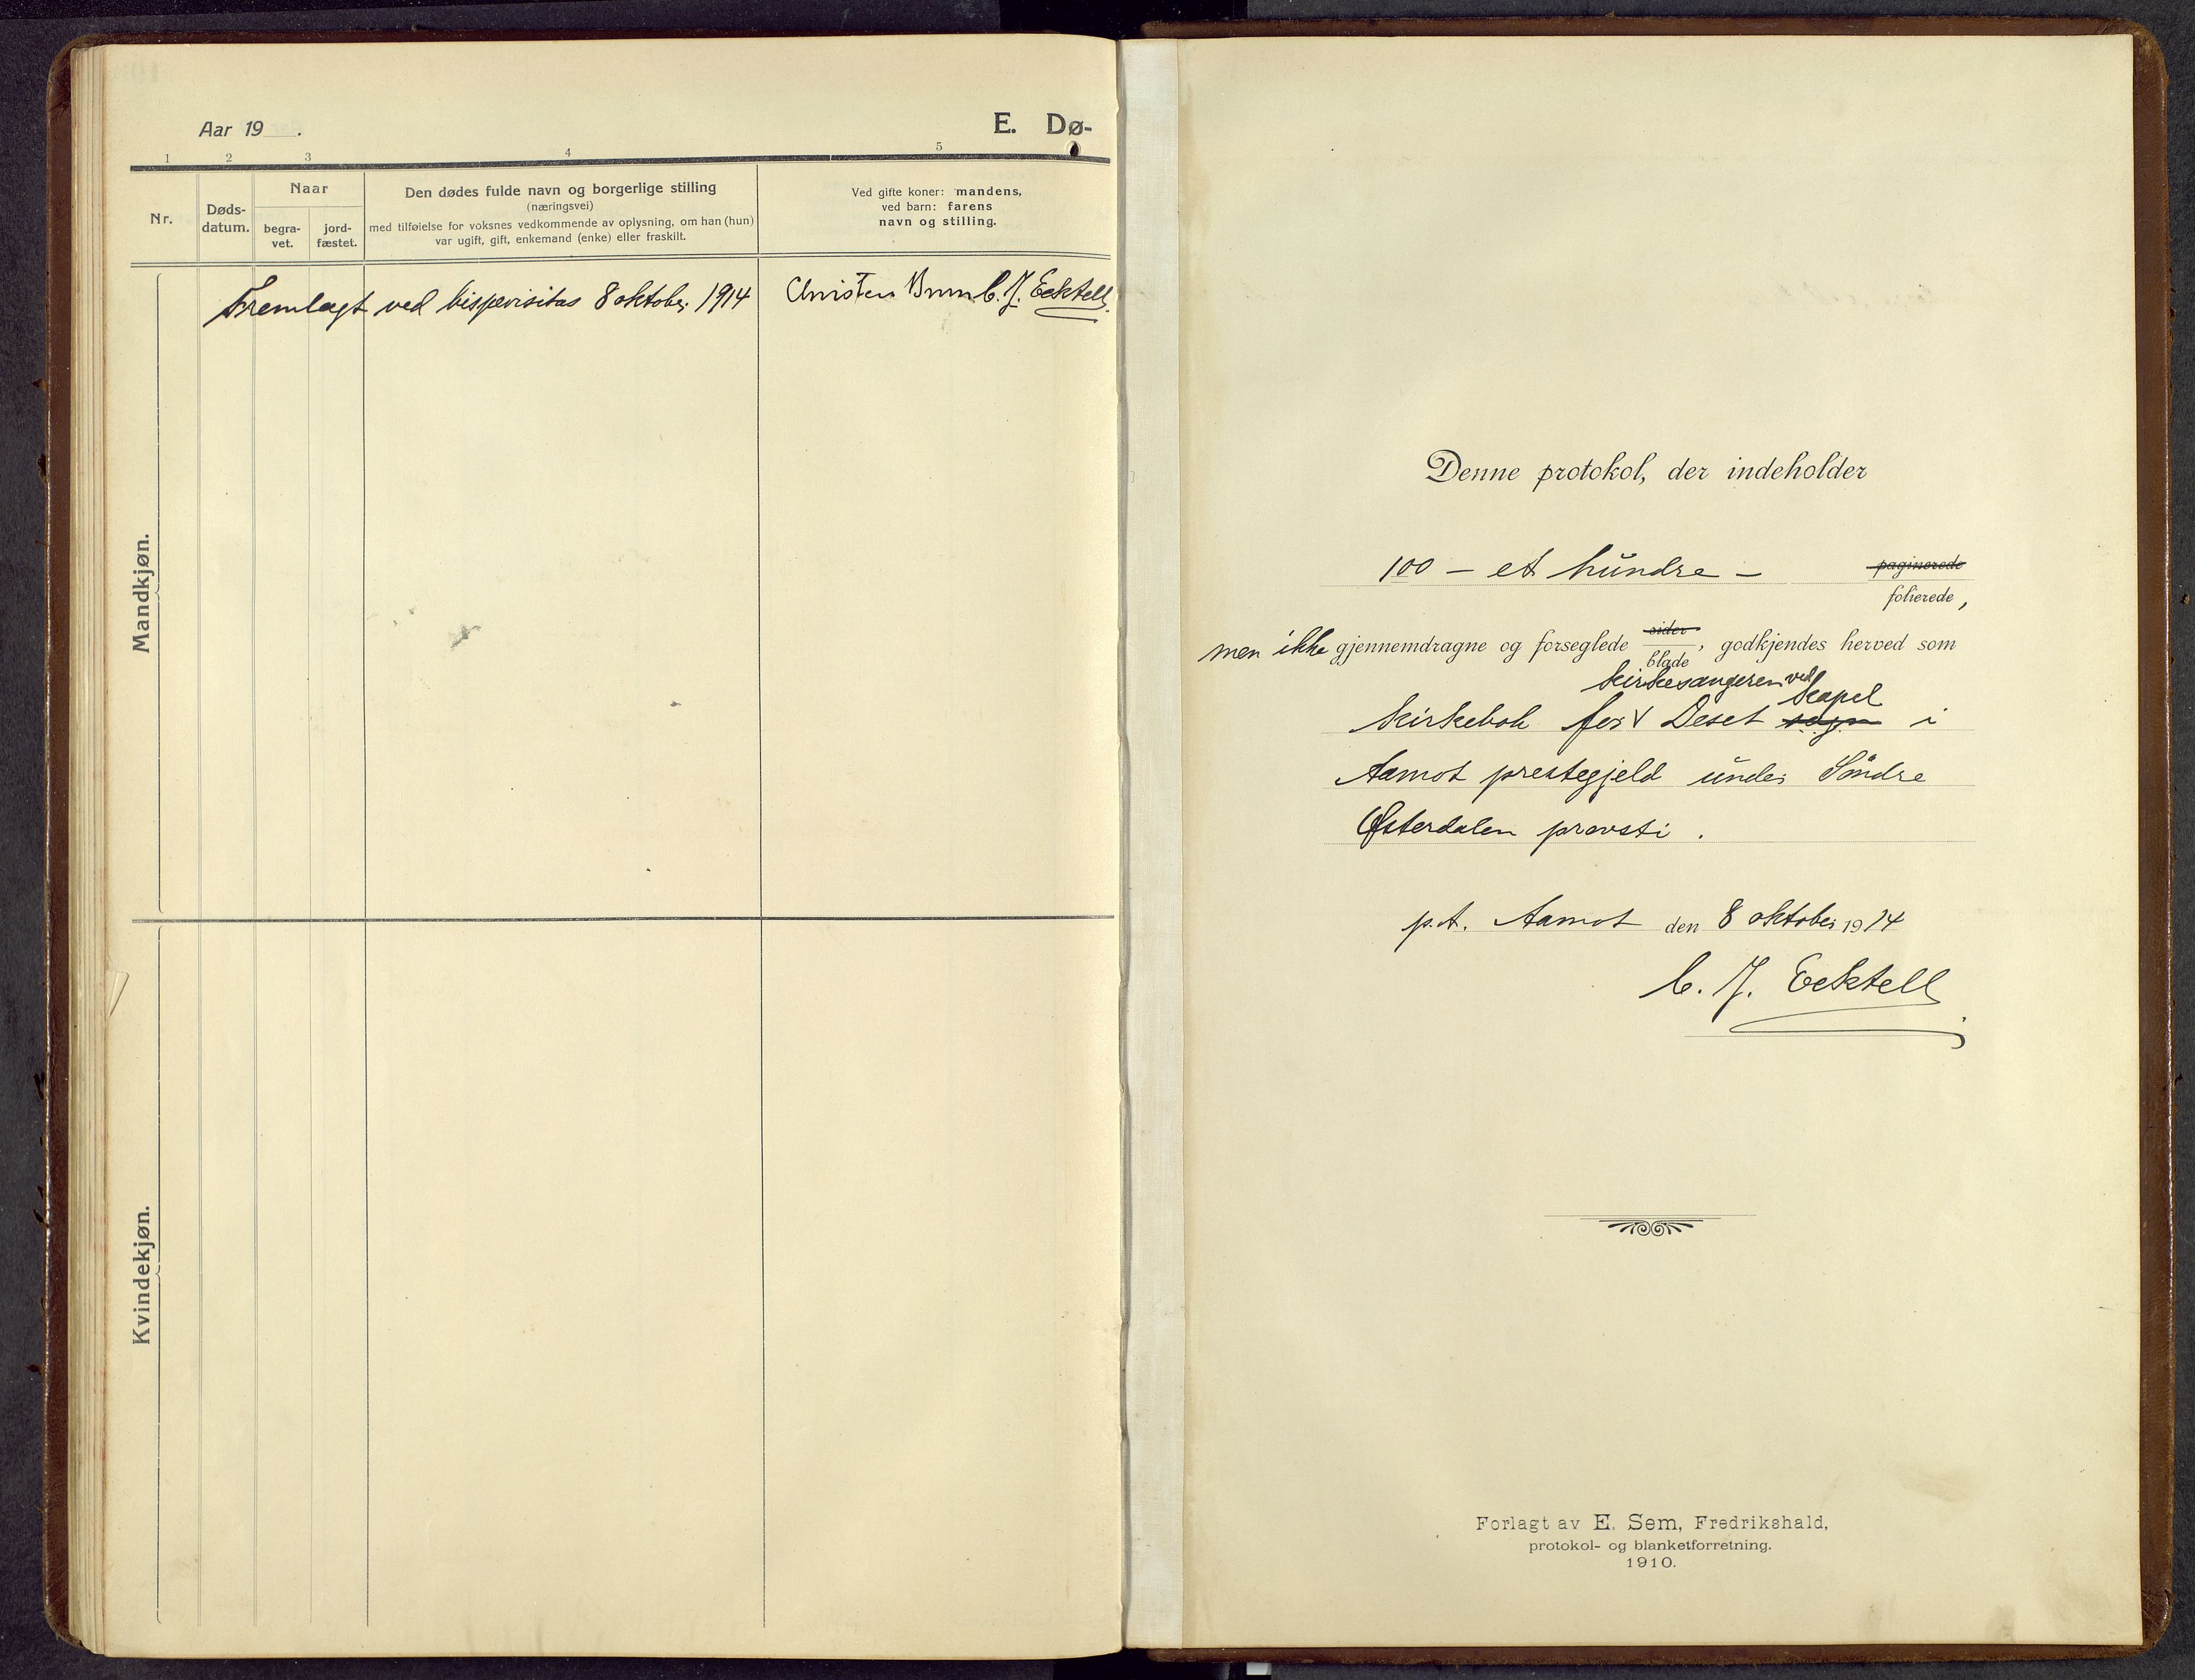 Aar 19 .
E. Dø-
1 2 3 4 5
Nr.
Døds-
datum.
Naar
begra-
vet.
jord-
fæstet.
Den dødes fulde navn og borgerlige stilling
(næringsvei)
med tilføielse for voksnes vedkommende av oplysning, om han (hun)
var ugift, gift, enkemand (enke) eller fraskilt.
Ved gifte koner: mandens,
ved barn: farens
navn og stilling.
Fremlagt ved bispevisitas 8 oktober 1914 Christen Brun C. J. Ecktell.
Mandkjøn.
Kvindekjøn.
Denne protokol, der indeholder
100 — et hundre — paginerede
folierede,
men ikke gjennemdragne og forseglede sider
blade, godkjendes herved som
kirkesangeren ved
kapel
kirkebok for V Deset sogn i
Aamot prestegjeld under Søndre
Østerdalen provsti.
p.t. Aamot den 8 oktober 1914
C. J. Ecktell
Forlagt av E. Sem, Fredrikshald,
protokol- og blanketforretning.
1910.